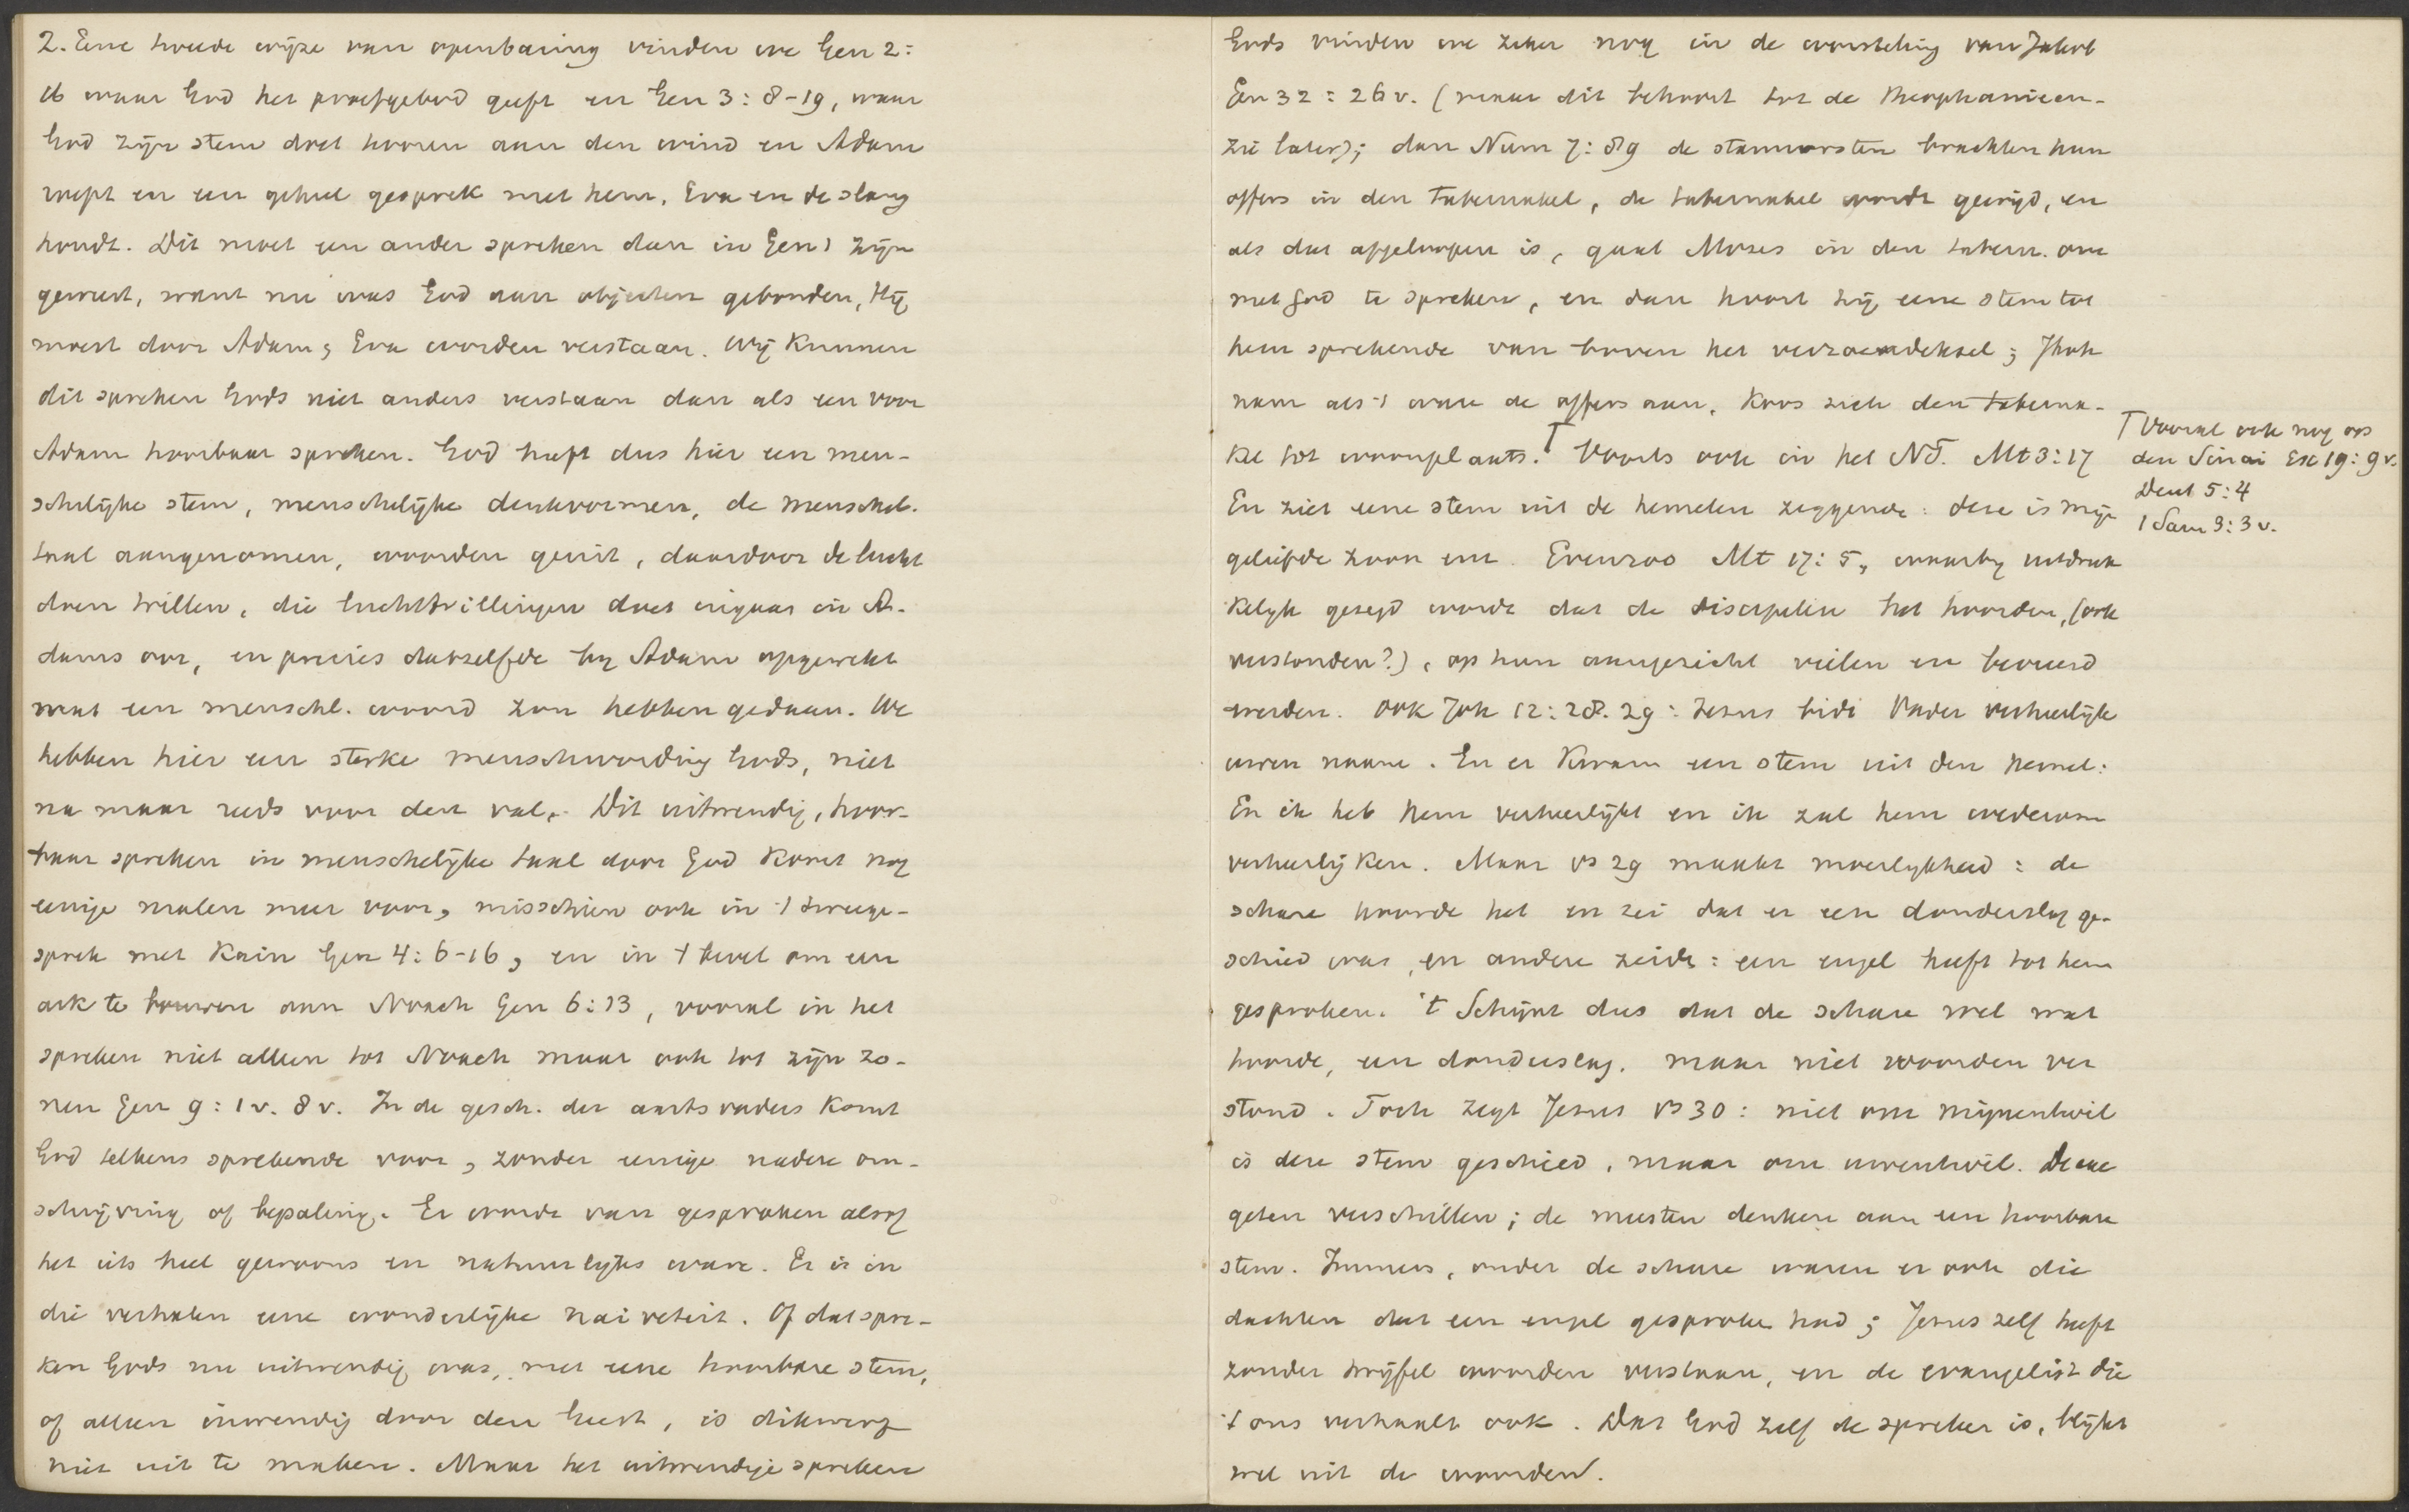 2. Eene tweede wijze van openbaring vinden we Gen 2:
16 waar God het proefgebod geeft en Gen 3: 8-19, waar
God zijn stem doet hooren aan den wind en Adam
roept en een geheel gesprek met hem, Eva en de slang
houdt. Dit moet een ander spreken dan in Gen 1 zijn
geweest, want nu was God aan objecten gebonden, Hij
moest door Adam & Eva worden verstaan. Wij kunnen
dit spreken Gods niet anders verstaan dan als een voor
Adam hoorbaar spreken. God heeft dus hier een men-
schelijke stem, menschelijke denkvormen, de menschel.
taal aangenomen, woorden geuit, daardoor de lucht
doen trillen, die luchttrillingen doet ingaan in A-
dams oor, en precies datzelfde bij Adam opgewekt
wat een menschl. woord zou hebben gedaan. We
hebben hier een sterke menschwording Gods, niet
na maar reeds voor den val. Dit uitwendig, hoor-
baar spreken in menschelijke taal door God komt nog
eenige malen meer voor, misschien ook in 't tweege-
sprek met Kain Gen 4: 6-16, en in 't bevel om een
ark te bouwen aan Noach Gen 6: 13, vooral in het
spreken niet alleen tot Noach maar ook tot zijn zo-
nen Gen 9: 1 v. 8 v. In de gesch. der aartsvaders komt
God telkens sprekende voor, zonder eenige nadere om-
schrijving of bepaling. Er wordt van gesproken alsof
het iets heel gewoons en natuurlijks ware. Er is in
die verhalen eene wonderlijke naiveteit. Of dat spre-
ken Gods nu uitwendig was, met eene hoorbare stem,
of alleen inwendig door den Geest, is dikwerf
niet uit te maken. Maar het uitwendige spreken
Gods vinden we zeker nog in de worsteling van Jakob
Gen 32: 26 v. (maar dit behoort tot de theophanieen-
zie later); dan Num 7: 89 de stamvorsten brachten hun
offers in den tabernakel, de tabernakel wordt gewijd, en
als dat afgeloopen is, gaat Mozes in den tabern. om
met God te spreken, en dan hoort hij eene stem tot
hem sprekende van boven het verzoendeksel; Jhvh
nam als 't ware de offers aan, koos zich den taberna-
kel tot woonplaats. ⊤ Voorts ook in het NT. Mt 3: 17
⊤ Vooral ook nog op
den Sinai Ex 19: 9 v.
Deut 5: 4
1 Sam 3: 3 v.
En ziet eene stem uit de hemelen zeggende: deze is mijn
geliefde zoon enz. Evenzoo Mt 17: 5, waarbij uitdruk
kelijk gezegd wordt dat de discipelen het hoorden, (ook
verstonden?), op hun aangezicht vielen en bevreesd
werden. Ook Joh 12: 28. 29: Jezus bidt Vader verheerlijk
uwen naam. En er kwam een stem uit den hemel:
En ik heb hem verheerlijkt en ik zal hem wederom
verheerlijken. Maar vs 29 maakt moeilijkheid: de
schare hoorde het en zei dat er een donderslag ge-
schied was, en andere zeide: een engel heeft tot hem
gesproken. 't Schijnt dus dat de schare wel wat
hoorde, een donderslag. maar niet woorden ver
stond. Toch zegt Jezus vs 30: niet om mijnentwil
is deze stem geschied, maar om uwentwil. De exe
geten verschillen; de meesten denken aan een hoorbare
stem. Immers, onder de schare waren er ook die
dachten dat een engel gesproken had; Jezus zelf heeft
zonder twijfel woorden verstaan, en de evangelist die
't ons verhaalt ook. Dat God zelf de spreker is, blijkt
wel uit de woorden.